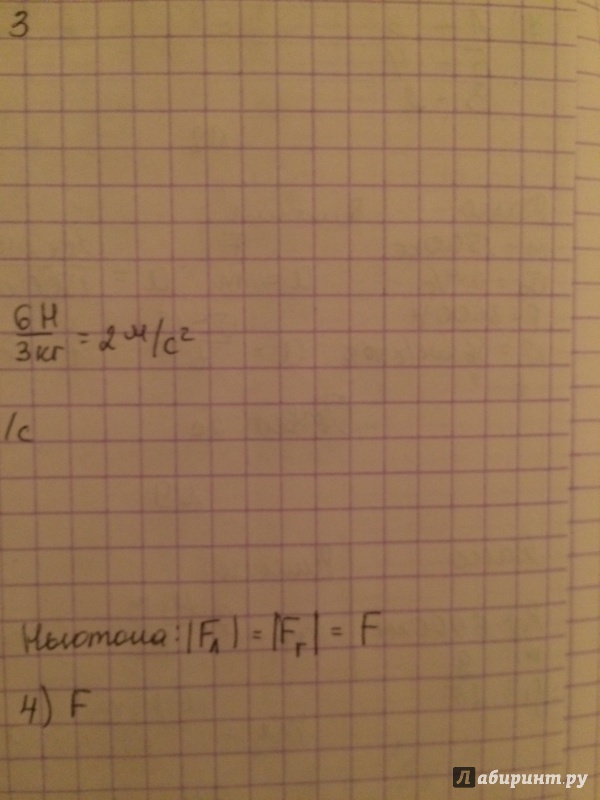 3
6 Н
3 кг = 2 м/с²
/с
Ньютона: |Fл| = |Fг| = F
4) F
Лабиринт.ру